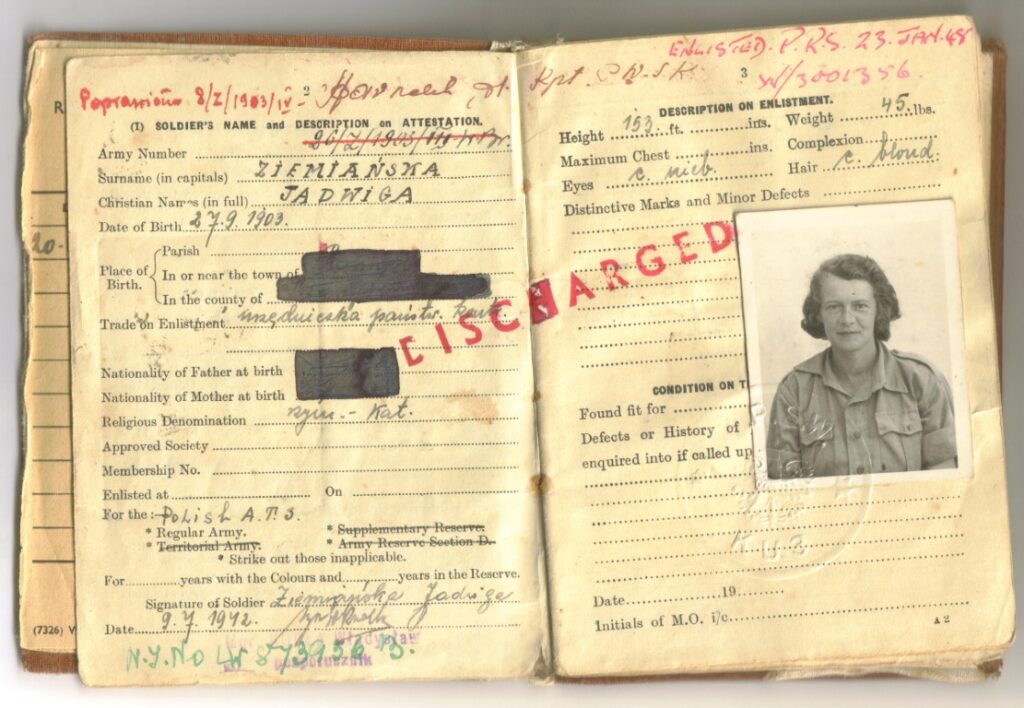 Poprawiono 8/Z/1903/IV-
2
(I) SOLDIER'S NAME and DESCRIPTION on ATTESTATION.
Army Number
Surname (in capitals) ZIEMIAŃSKA
Christian Names (in full) JADWIGA
Date of Birth 27.9 1903.
Place of Birth.
Parish
In or near the town of
In the county of
Trade on Enlistment urzędniczka państw. kontr.
Nationality of Father at birth
Nationality of Mother at birth
Religious Denomination rzym.-kat.
Approved Society
Membership No.
Enlisted at On
For the:- POLISH A.T.S.
* Regular Army. * Supplementary Reserve.
* Territorial Army. * Army Reserve Section D.
* Strike out those inapplicable.
For years with the Colours and years in the Reserve.
Signature of Soldier Ziemiańska Jadwiga
Date 9.7.1942.
(7326)
DISCHARGED
ENLISTED. P.R.S. 23. JAN. 48
3
W/3001356.
DESCRIPTION ON ENLISTMENT.
Height 153 ft. ins. Weight 45. lbs.
Maximum Chest ins. Complexion
Eyes c. nieb. Hair c. blond.
Distinctive Marks and Minor Defects
CONDITION ON T
Found fit for
Defects or History of
enquired into if called up
Date 19
Initials of M.O. i/c.
A 2